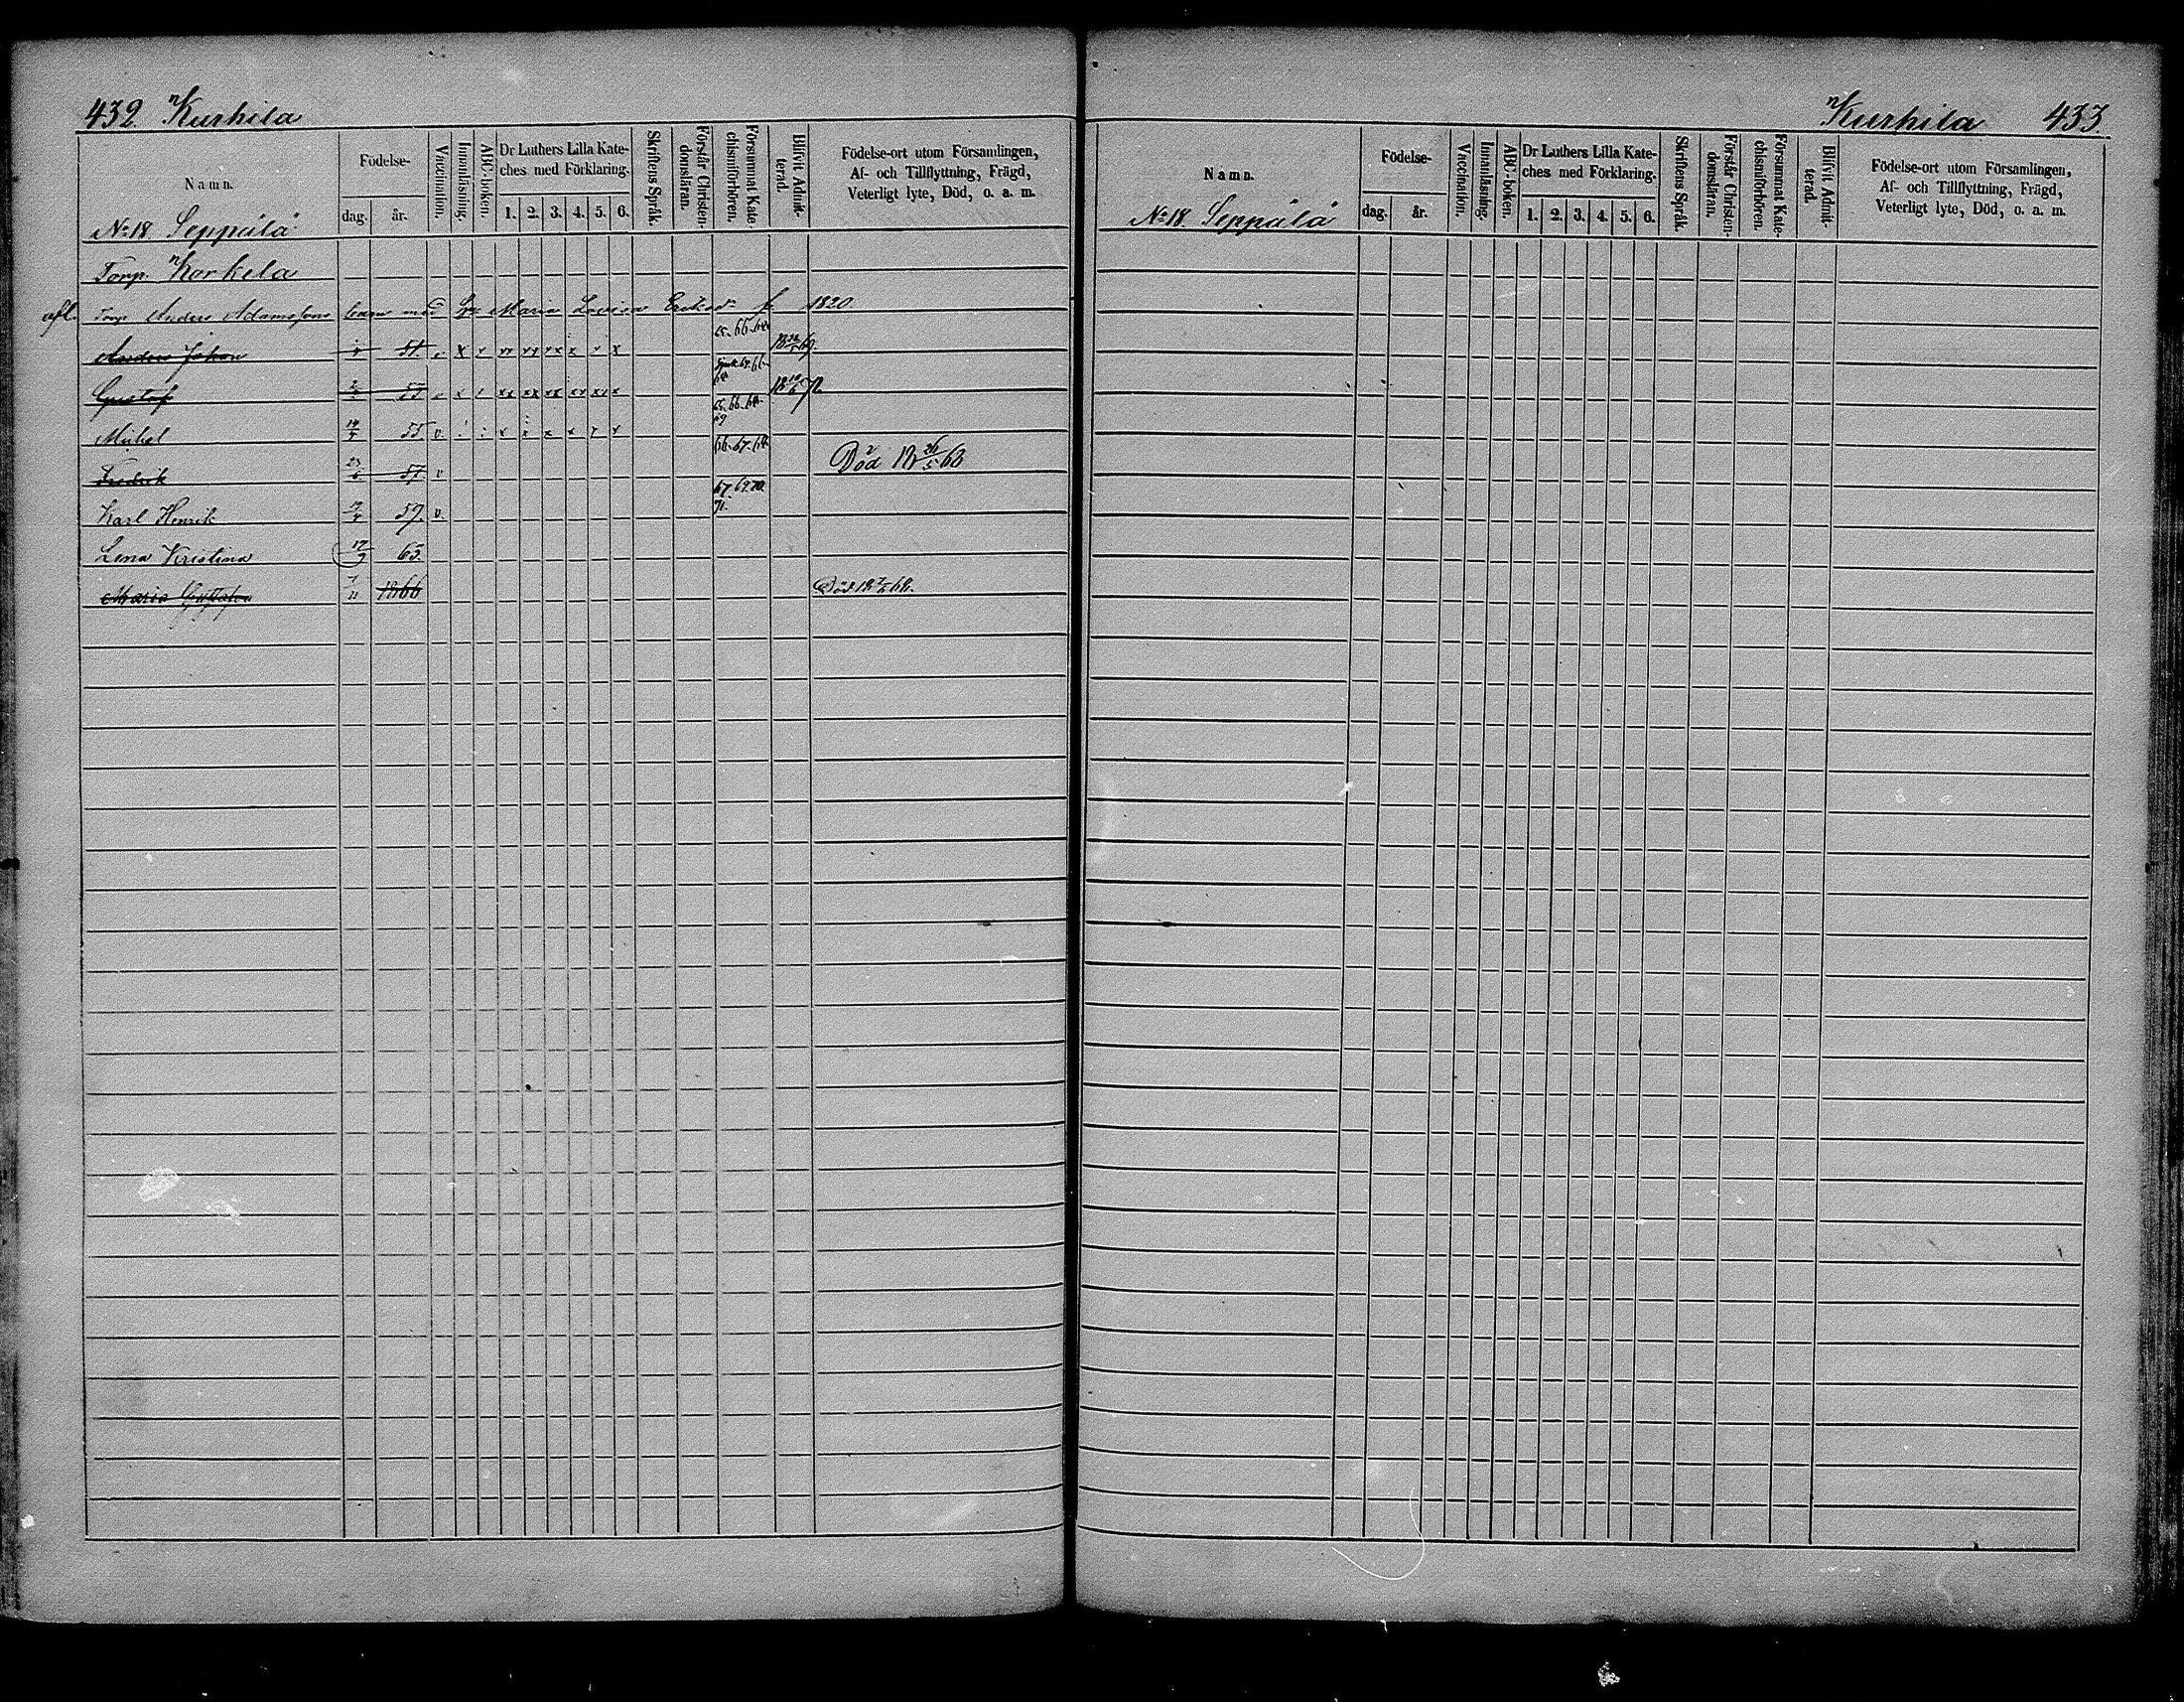 432. Kurhila
Namn.
Födelse-
dag. år.
Vaccination.
Innanläsning.
ABC-boken.
Dr Luthers Lilla Kate-
ches med Förklaring.
1. 2. 3. 4. 5. 6.
Skriftens Språk.
Förstår Christen-
domsläran.
Försummat Kate-
chismiförhören.
Blifvit Admit-
terad.
Födelse-ort utom Församlingen,
Af- och Tillflyttning, Frägd,
Veterligt lyte, Död, o. a. m.
No 18. Seppälä
Torp. Korkela
afl. Torp. Anders Adamssons barn med Maria Lovisa f. 1820.
Anders Johan 51. 65. 66. 68.
Gustaf 53
Mickel 19/4 55. v. 65. 66. 68. 69
Fredrik 23/6 57 v 66. 67. 68 Död 18 26/5 68
Karl Henrik 57. v. 67. 69. 70. 71.
Lena Kristina 17/9 63.
Maria 7/11 1866
Kurhila 433.
Namn.
Födelse-
dag. år.
Vaccination.
Innanläsning.
ABC-boken.
Dr Luthers Lilla Kate-
ches med Förklaring.
1. 2. 3. 4. 5. 6.
Skriftens Språk.
Förstår Christen-
domsläran.
Försummat Kate-
chismiförhören.
Blifvit Admit-
terad.
Födelse-ort utom Församlingen,
Af- och Tillflyttning, Frägd,
Veterligt lyte, Död, o. a. m.
No 18. Seppälä